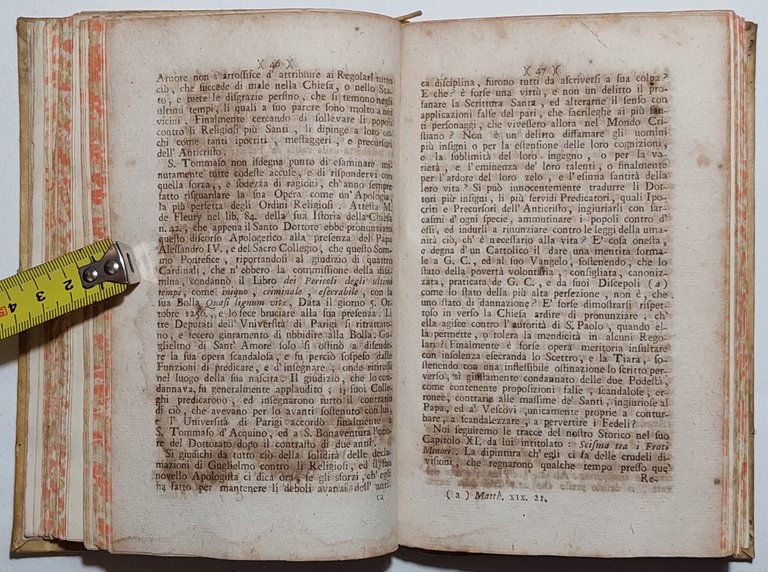 )( 46 )(
Amore non s'arrossisce d'attribuire ai Regolari tutto
ciò, che succede di male nella Chiesa, o nello Sta-
to, e niete le disgrazie persino, che si temono negli
ultimi tempi, li quali a suo parere sono molto a noi
vicini. Finalmente cercando di sollevare li popoli
contro li Religiosi più Santi, li dipinge a loro oc-
chi come tanti ipocriti, messaggeri, e precursori
dell'Anticristo.
S. Tommaso non isdegna punto di esaminare mi-
nutamente tutte codeste accuse, e di rispondervi con
quella forza, e sodezza di ragioni, ch'anno sempre
fatto risguardare la sua Opera come un'Apologia
la più perfetta degli Ordini Religiosi. Attesta M.
de Fleury nel lib. 84. della sua Istoria della Chiesa
n. 42., che appena il Santo Dottore ebbe pronunziato
questo discorso Apologetico alla presenza del Papa
Alessandro IV., e del Sacro Collegio, che questo Som-
mo Pontefice, riportandosi al giudizio di quattro
Cardinali, che n'ebbero la commissione della disa-
mina, condannò il Libro dei Pericoli degli ultimi
tempi, come iniquo, criminale, esecrabile, con la
sua Bolla Quasi lignum vitæ, Data il giorno 5. Ot-
tobre 1256., e lo fece bruciare alla sua presenza. Li
tre Deputati dell'Università di Parigi si ritrattaro-
no, e fecero giuramento di ubbidire alla Bolla. Gu-
glielmo di Sant' Amore solo si ostinò a difende-
re la sua opera scandalosa, e fu perciò sospeso dalle
Funzioni di predicare, e d'insegnare; onde ritirossi
nel luogo della sua nascita. Il giudizio, che lo con-
dannava, fu generalmente applaudito; li suoi Colle-
ghi predicarono, ed insegnarono tutto il contrario
di ciò, che avevano per lo avanti sostenuto con lui,
e l'Università di Parigi accordò finalmente a
S. Tommaso d'Acquino, ed a S. Bonaventura l'ono-
re del Dottorato dopo il contrasto di due anni.
Si giudichi da tutto ciò della solidità delle decla-
mazioni di Guglielmo contro li Religiosi, ed il suo
novello Apologista ci dica ora, se gli sforzi, ch'egli
ha fatto per mantenere li deboli avanzi dell'anti-
ca
)( 47 )(
ca disciplina, furono tutti da ascriversi a sua colpa?
E che? è forse una virtù, e non un delitto il pro-
fanare la Scrittura Santa, ed alterarne il senso con
applicazioni false del pari, che sacrileghe ai più san-
ti personaggi, che vivessero allora nel Mondo Cri-
stiano? Non è un delitto diffamare gli uomini
più insigni o per la estensione delle loro cognizioni,
e la sublimità del loro ingegno, o per la va-
rietà, e l'eminenza de' loro talenti, o finalmente
per l'ardore del loro zelo, e l'esimia santità della
loro vita? Si può innocentemente tradurre li Dot-
tori più insigni, li più fervidi Predicatori, quali Ipo-
criti e Precursori dell'Anticristo, ingiuriarli con sar-
casmi d'ogni specie, ammutinare i popoli contro d'
essi, ed indurli a rinunziare contro le leggi della uma-
nità ciò, ch'è necessario alla vita? E' cosa onesta,
e degna d'un Cattolico il dare una mentita forma-
le a G. C., ed al suo Vangelo, sostenendo, che lo
stato della povertà volontaria, consigliata, canoniz-
zata, praticata da G. C., e da' suoi Discepoli (a)
come lo stato della più alta perfezione, non è, che
uno stato di dannazione? E' forse dimostrarsi rispet-
toso in verso la Chiesa ardire di pronunziare, ch'
ella agisce contro l'autorità di S. Paolo, quando el-
la permette, o tolera la mendicità in alcuni Rego-
lari? Finalmente è forse opera meritoria insultare
con insolenza esecranda lo Scettro, e la Tiara, soste-
nendo con una inflessibile ostinazione lo scritto per-
verso, sì giustamente condannato delle due Podestà,
come contenente proposizioni false, scandalose, er-
ronee, contrarie alle massime de' Santi, ingiuriose al
Papa, ed a' Vescovi, unicamente proprie a contur-
bare, a scandalezzare, a pervertire i Fedeli?
Noi seguiremo le tracce del nostro Storico nel suo
Capitolo XI. da lui intitolato: Scisma tra i Frati
Minori. La dipintura ch'egli ci fa delle crudeli di-
visioni, che regnarono qualche tempo presso que'
Re-
(a) Matth. XIX. 21.
2 3 4